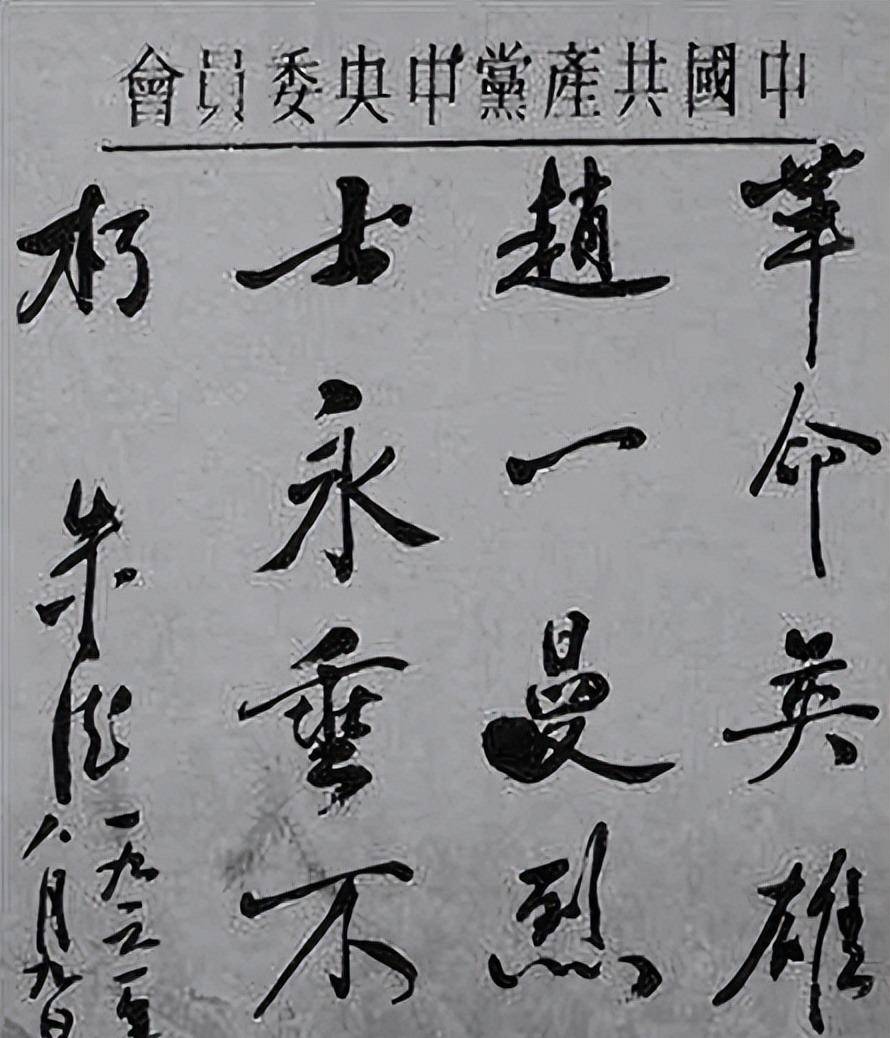 中國共產黨中央委員會
革命英雄
趙一曼烈
士永垂不
朽
朱德
一九六一年
八月九日